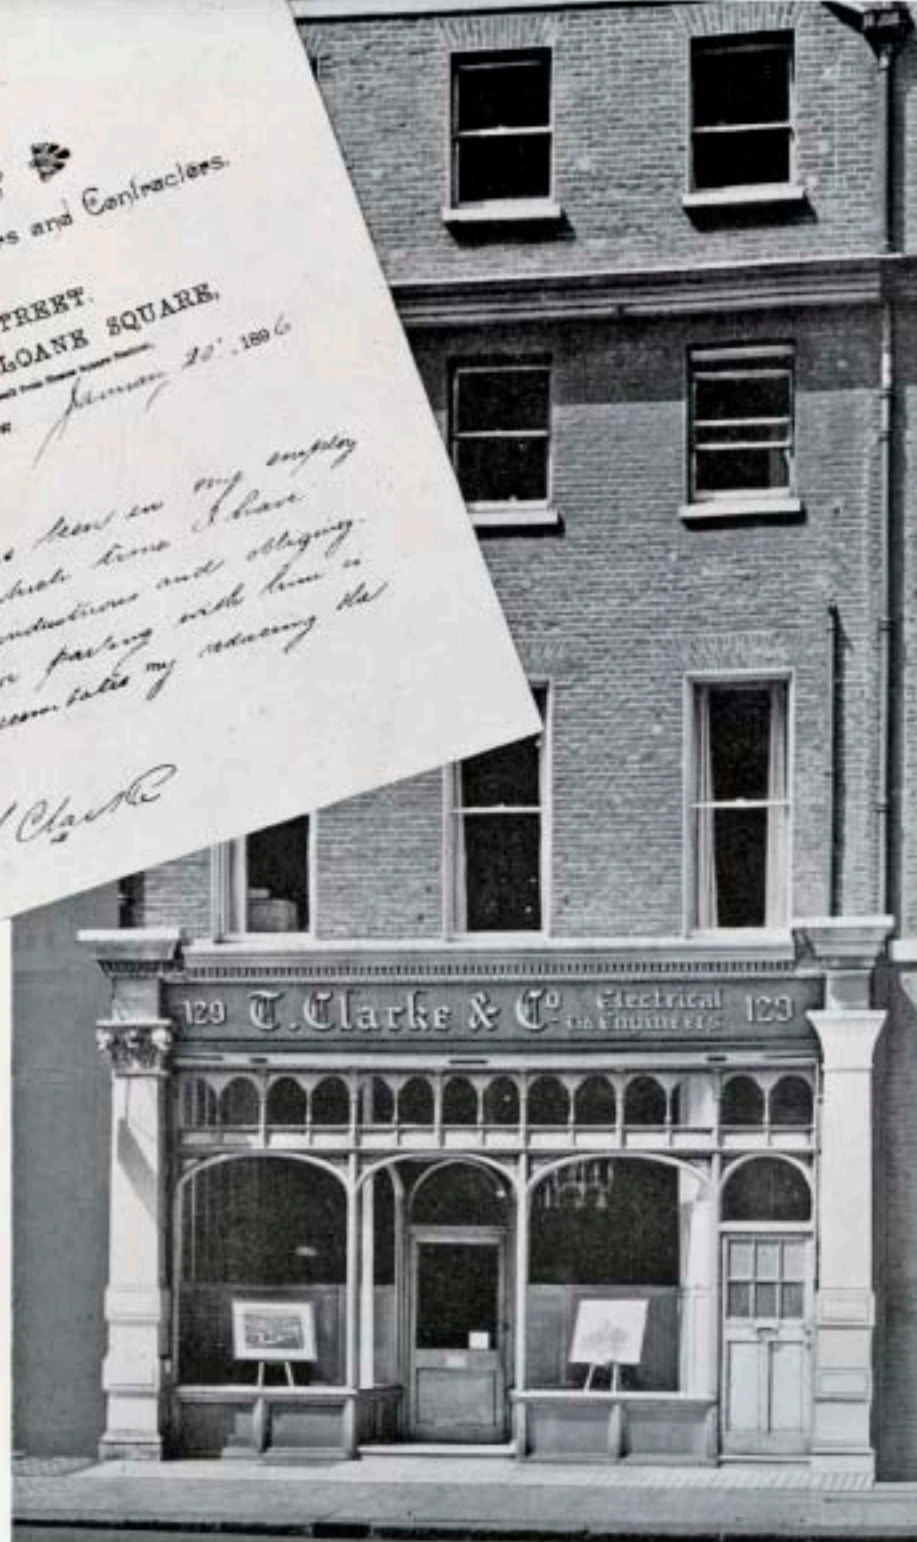 s and Contractors.
TREET.
LOANE SQUARE,
January 20' 1896
s been in my employ
which time I have
industrious and obliging.
for parting with him is
my reducing the
Clarke
129 T. Clarke & Co Electrical Engineers 129